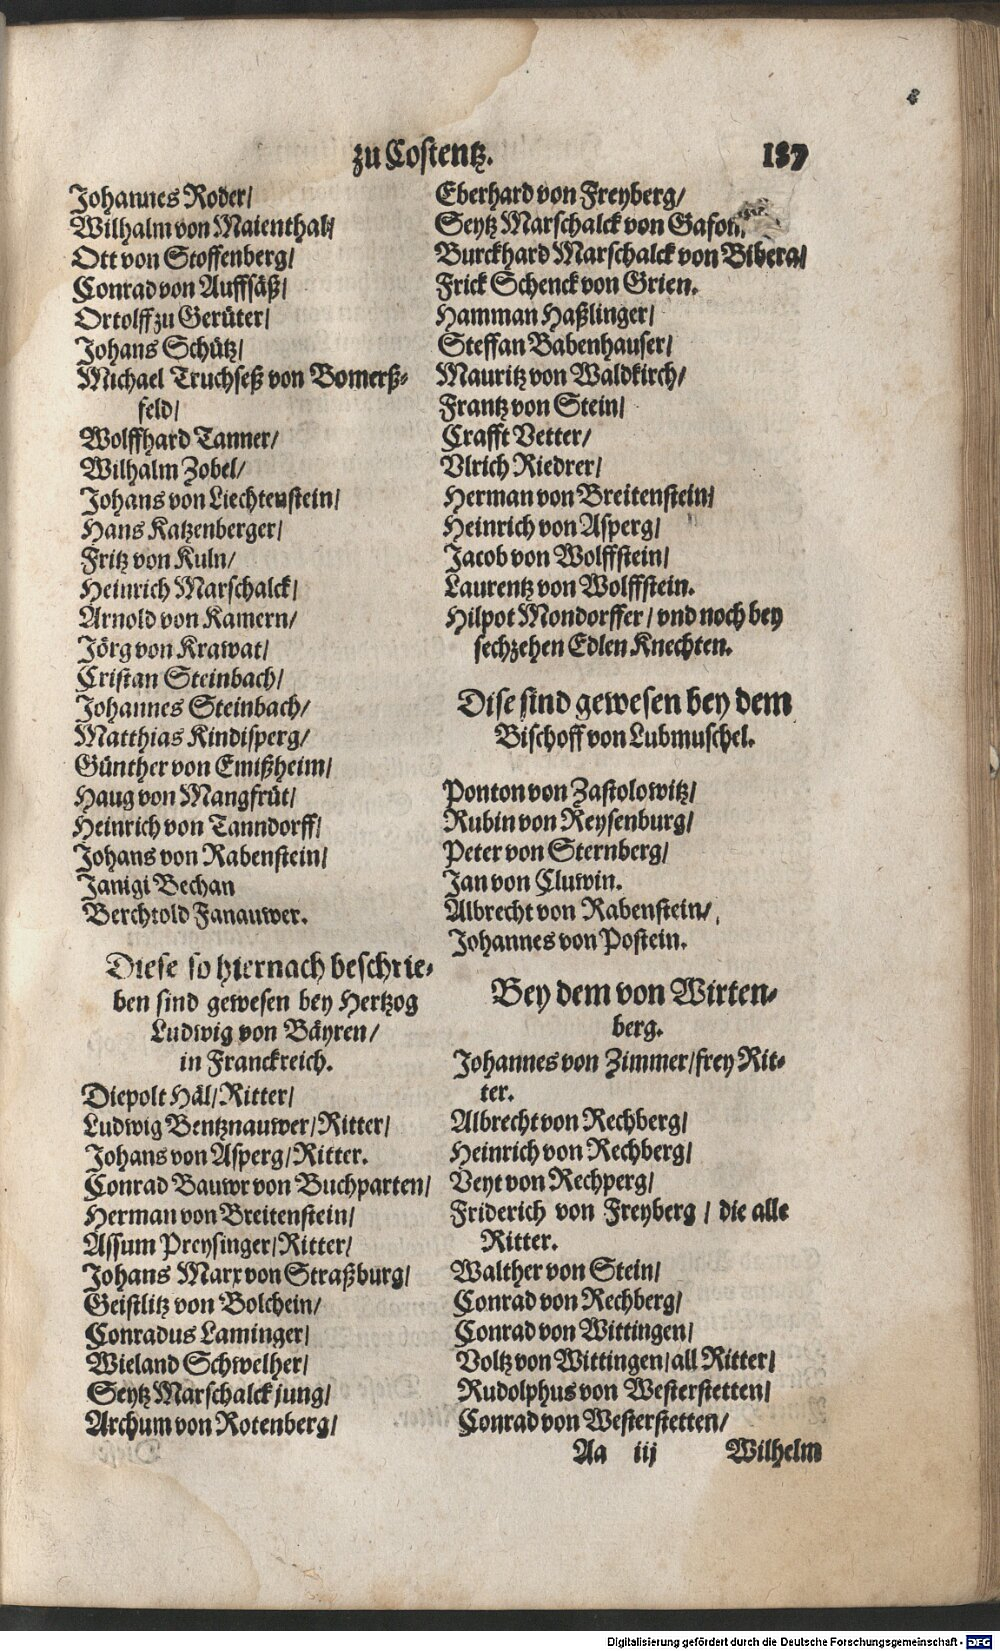 zu Costentz. 187
Johannes Roder/
Wilhalm von Maienthal/
Ott von Stoffenberg/
Conrad von Auffsäß/
Ortolff zu Gerüter/
Johans Schütz/
Michael Truchseß von Bomerß-
feld/
Wolffhard Tanner/
Wilhalm Zobel/
Johans von Liechtenstein/
Hans Katzenberger/
Fritz von Kuln/
Heinrich Marschalck/
Arnold von Kamern/
Jörg von Krawat/
Cristan Steinbach/
Johannes Steinbach/
Matthias Kindisperg/
Günther von Emißheim/
Haug von Mangfrüt/
Heinrich von Tanndorff/
Johans von Rabenstein/
Janigi Bechan
Berchtold Fanauwer.
Diese so hiernach beschrie-
ben sind gewesen bey Hertzog
Ludwig von Bäyren/
in Franckreich.
Diepolt Häl/Ritter/
Ludwig Bentznauwer/Ritter/
Johans von Asperg/Ritter.
Conrad Bauwr von Buchparten/
Herman von Breitenstein/
Assum Preysinger/Ritter/
Johans Marx von Straßburg/
Geistlitz von Bolchein/
Conradus Laminger/
Wieland Schwelher/
Seytz Marschalck jung/
Archum von Rotenberg/
Eberhard von Freyberg/
Seytz Marschalck von
Burckhard Marschalck von Bibera/
Frick Schenck von Grien.
Hamman Haßlinger/
Steffan Babenhauser/
Mauritz von Waldkirch/
Frantz von Stein/
Crafft Vetter/
Vlrich Riedrer/
Herman von Breitenstein/
Heinrich von Asperg/
Jacob von Wolffstein/
Laurentz von Wolffstein.
Hilpot Mondorffer/ vnd noch bey
sechzehen Edlen Knechten.
Dise sind gewesen bey dem
Bischoff von Lubmuschel.
Ponton von Zastolowitz/
Rubin von Reysenburg/
Peter von Sternberg/
Jan von Cluwin.
Albrecht von Rabenstein/
Johannes von Postein.
Bey dem von Wirten-
berg.
Johannes von Zimmer/frey Rit-
ter.
Albrecht von Rechberg/
Heinrich von Rechberg/
Veyt von Rechperg/
Friderich von Freyberg / die alle
Ritter.
Walther von Stein/
Conrad von Rechberg/
Conrad von Wittingen/
Voltz von Wittingen/all Ritter/
Rudolphus von Westerstetten/
Conrad von Westerstetten/
Aa iij Wilhelm
Digitalisierung gefördert durch die Deutsche Forschungsgemeinschaft - DFG